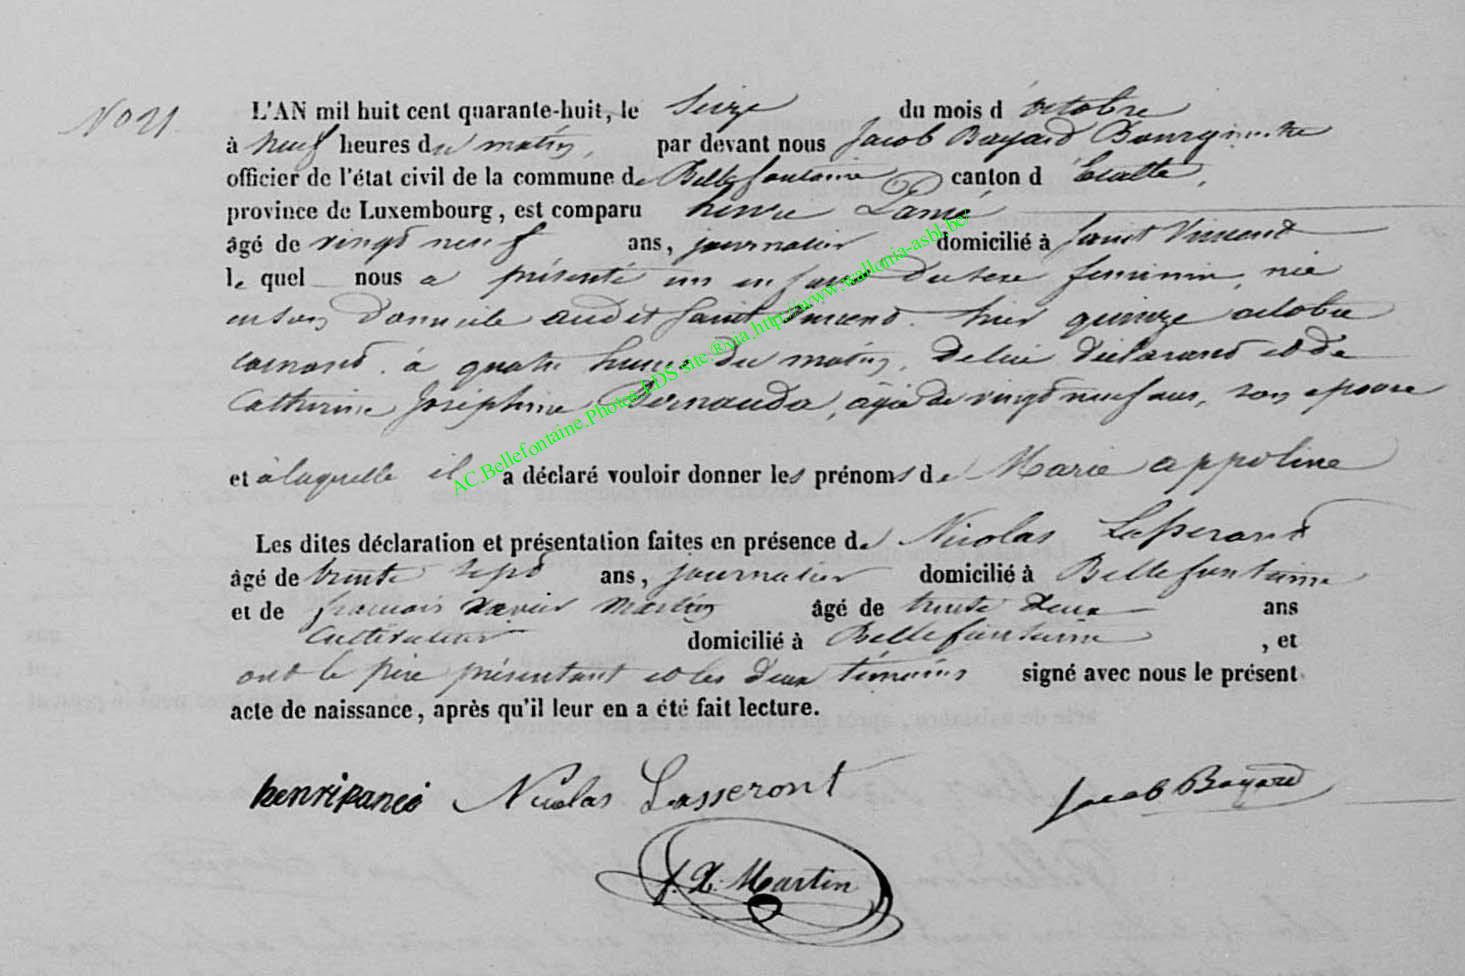 No 21. L'AN mil huit cent quarante-huit, le Seize du mois d'octobre
à neuf heures du matin, par devant nous Jacob Bayard Bourgmestre
officier de l'état civil de la commune de Bellefontaine canton d'Etalle,
province de Luxembourg, est comparu henri Pancé
âgé de vingt neuf ans, journalier domicilié à Saint Vincent
lequel nous a présenté un enfant du sexe féminin, née
en son Domicile audit Saint Vincent. hier quinze octobre
courant. à quatre heures du matin, de lui déclarant et de
Catherine Joséphine Bernauda, agée de vingt neuf ans, son epouse
et à laquelle il a déclaré vouloir donner les prénoms de Marie appoline
Les dites déclaration et présentation faites en présence de Nicolas Lasserond
âgé de trente sept ans, journalier domicilié à Bellefontaine
et de francois Xavier Martin âgé de trente deux ans
Cultivateur domicilié à Bellefontaine, et
ont le père présentant et les deux témoins signé avec nous le présent
acte de naissance, après qu'il leur en a été fait lecture.
henri pancé Nicolas Lasseront Jacob Bayard
f. X. Martin
AC.Bellefontaine.Photos LDS site.®via http://www.wallonia-asbl.be/